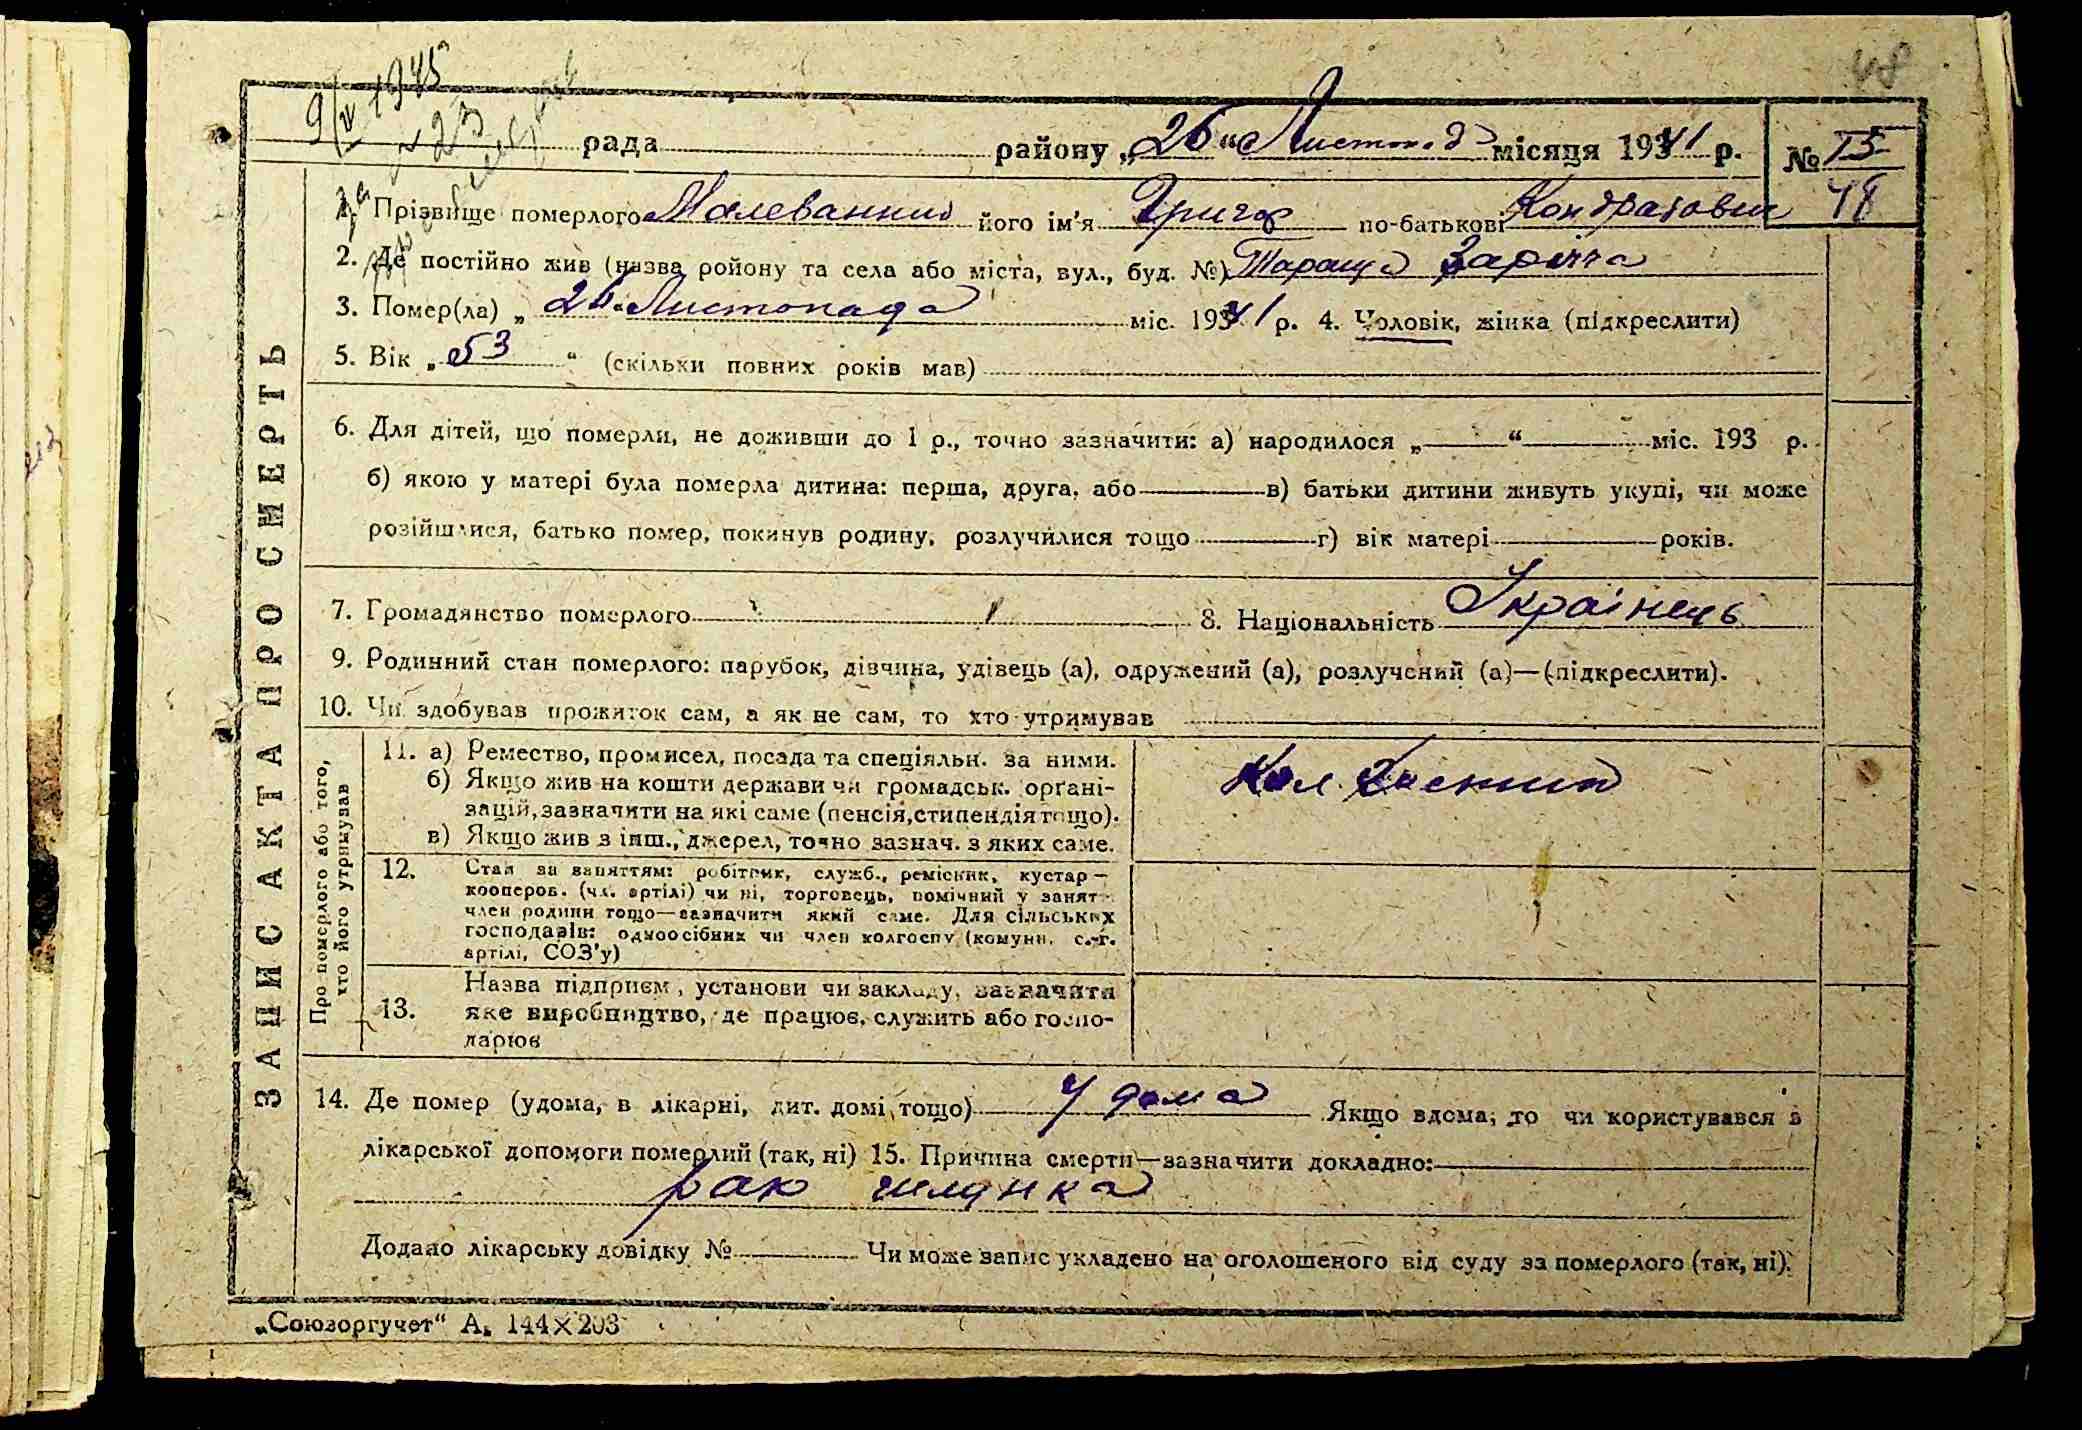 48
9/IV 1945
№ 23
рада районy „26“ Листопад місяця 1941 р. № 15
48
1. Прізвище померлого Малеванний його ім'я Григор по-батькові Кондратович
2. Де постійно жив (назва ройону та села або міста, вул., буд. №) Тараща Зарічча
3. Помер(ла) „26“ Листопада міс. 1941 р. 4. Чоловік, жінка (підкреслити)
5. Вік „53“ (скільки повних років мав)
6. Для дітей, що померли, не доживши до 1 р., точно зазначити: а) народилося „ “ міс. 193 р.
б) якою у матері була померла дитина: перша, друга, або в) батьки дитини живуть укупі, чи може
розійшлися, батько помер, покинув родину, розлучилися тощо г) вік матері років.
7. Громадянство померлого 8. Національність Українець
9. Родинний стан померлого: парубок, дівчина, удівець (а), одружений (а), розлучений (а)—(підкреслити).
10. Чи здобував прожиток сам, а як не сам, то хто утримував
ЗАПИС АКТА ПРО СМЕРТЬ
Про померлого або того,
хто його утримував
11. а) Ремество, промисел, посада та спеціяльн. за ними.
б) Якщо жив на кошти держави чи громадськ. орґані-
зацій, зазначити на які саме (пенсія, стипендія тощо).
в) Якщо жив з інш., джерел, точно зазнач. з яких саме.
12. Стан за заняттям: робітник, служб., ремісник, кустар—
кооперов. (чл. артілі) чи ні, торговець, помічний у занят—
член родини тощо—зазначити який саме. Для сільських
господарів: одноосібник чи член колгоспу (комуни, с.-г.
артілі, СОЗ'у)
13. Назва підприєм, установи чи закладу, зазначити
яке виробництво, де працює, служить або госпо-
дарює
14. Де помер (удома, в лікарні, дит. домі, тощо) у дома Якщо вдома, то чи користувався з
лікарської допомоги померлий (так, ні) 15. Причина смерти—зазначити докладно:
рак шлунка
Додано лікарську довідку № Чи може запис укладено на оголошеного від суду за померлого (так, ні).
„Союзоргучет“ А. 144×203